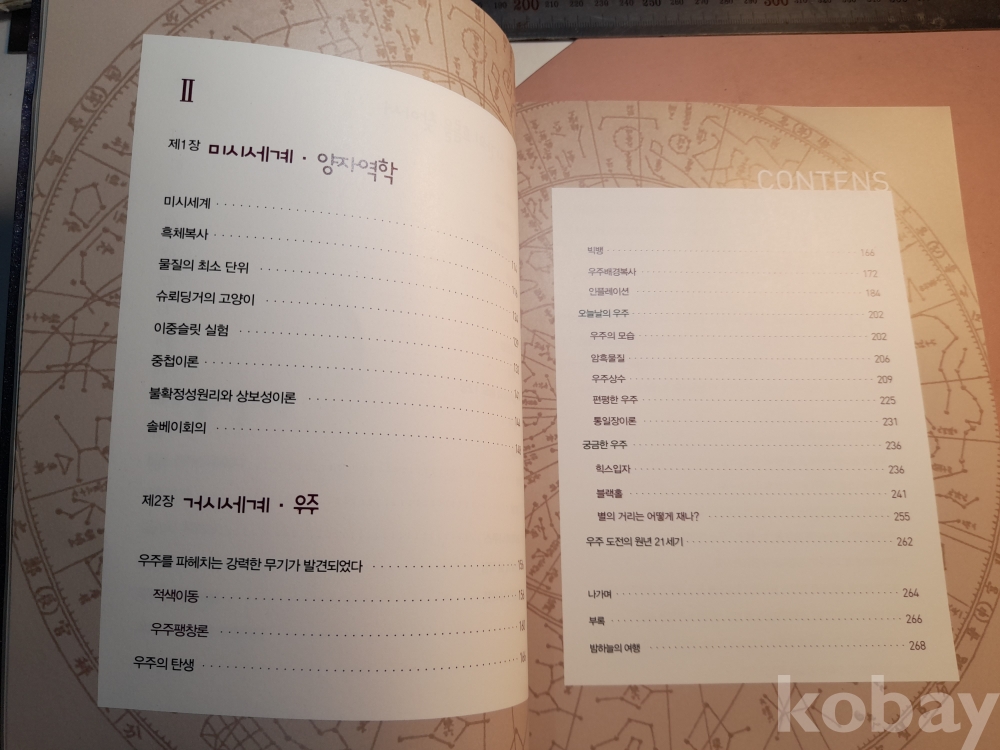 II
제1장 미시세계 · 양자역학
미시세계
흑체복사
물질의 최소 단위
슈뢰딩거의 고양이
이중슬릿 실험
중첩이론
불확정성원리와 상보성이론
솔베이회의
제2장 거시세계 · 우주
우주를 파헤치는 강력한 무기가 발견되었다
적색이동
우주팽창론
우주의 탄생
CONTENS
빅뱅 166
우주배경복사 172
인플레이션 184
오늘날의 우주 202
우주의 모습 202
암흑물질 206
우주상수 209
편평한 우주 225
통일장이론 231
궁금한 우주 236
힉스입자 236
블랙홀 241
별의 거리는 어떻게 재나? 255
우주 도전의 원년 21세기 262
나가며 264
부록 266
밤하늘의 여행 268
200
300
kobay